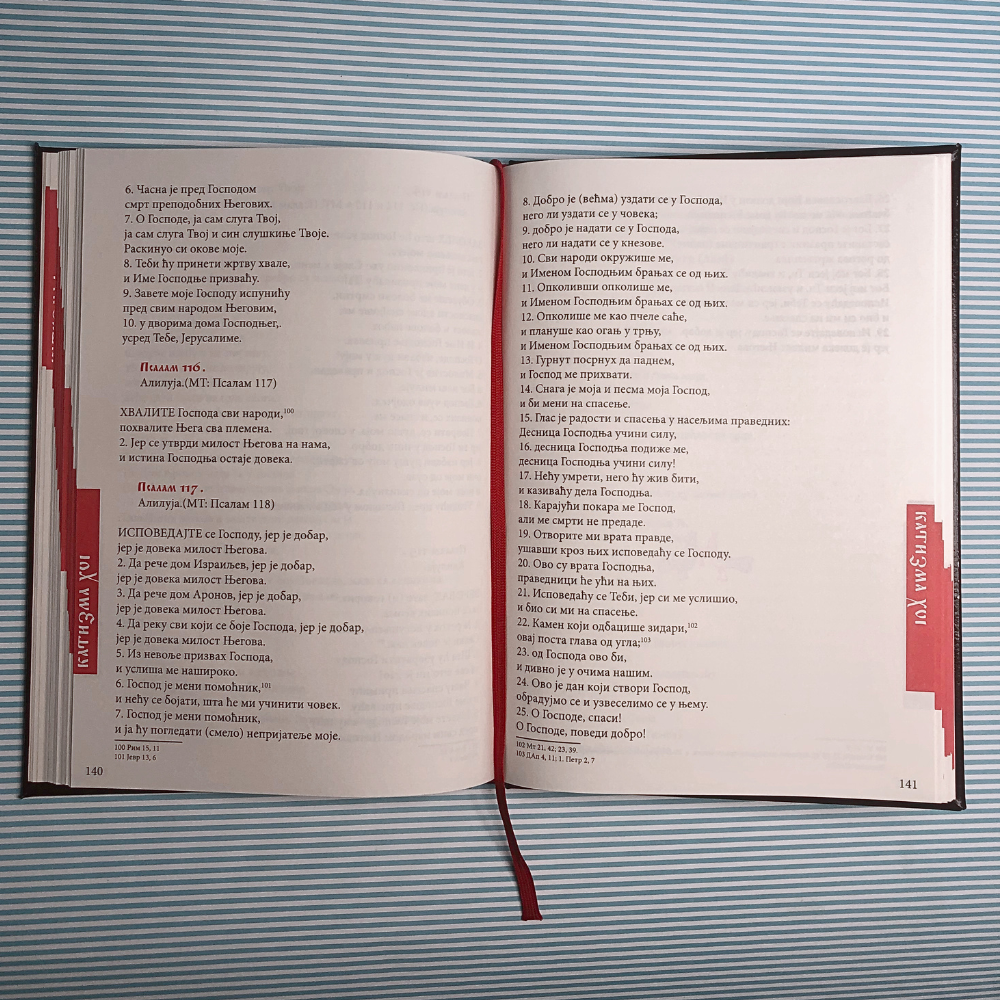 6. Часна је пред Господом
смрт преподобних Његових.
7. О Господе, ја сам слуга Твој,
ја сам слуга Твој и син слушкиње Твоје.
Раскинуо си окове моје.
8. Теби ћу принети жртву хвале,
и Име Господње призваћу.
9. Завете моје Господу испунићу
пред свим народом Његовим,
10. у дворима дома Господњег,.
усред Тебе, Јерусалиме.
Псалам 116.
Алилуја.(МТ: Псалам 117)
ХВАЛИТЕ Господа сви народи,100
похвалите Њега сва племена.
2. Јер се утврди милост Његова на нама,
и истина Господња остаје довека.
Псалам 117.
Алилуја.(МТ: Псалам 118)
ИСПОВЕДАЈТЕ се Господу, јер је добар,
јер је довека милост Његова.
2. Да рече дом Израиљев, јер је добар,
јер је довека милост Његова.
3. Да рече дом Аронов, јер је добар,
јер је довека милост Његова.
4. Да реку сви који се боје Господа, јер је добар,
јер је довека милост Његова.
5. Из невоље призвах Господа,
и услиша ме нашироко.
6. Господ је мени помоћник,101
и нећу се бојати, шта ће ми учинити човек.
7. Господ је мени помоћник,
и ја ћу погледати (смело) непријатеље моје.
100 Рим 15, 11
101 Јевр 13, 6
140
КАТИЗМА XVI
8. Добро је (већма) уздати се у Господа,
него ли уздати се у човека;
9. добро је надати се у Господа,
него ли надати се у кнезове.
10. Сви народи окружише ме,
и Именом Господњим брањах се од њих.
11. Опколивши опколише ме,
и Именом Господњим брањах се од њих.
12. Опколише ме као пчеле саће,
и плануше као огањ у трњу,
и Именом Господњим брањах се од њих.
13. Гурнут посрнух да паднем,
и Господ ме прихвати.
14. Снага је моја и песма моја Господ,
и би мени на спасење.
15. Глас је радости и спасења у насељима праведних:
Десница Господња учини силу,
16. десница Господња подиже ме,
десница Господња учини силу!
17. Нећу умрети, него ћу жив бити,
и казиваћу дела Господња.
18. Карајући покара ме Господ,
али ме смрти не предаде.
19. Отворите ми врата правде,
ушавши кроз њих исповедаћу се Господу.
20. Ово су врата Господња,
праведници ће ући на њих.
21. Исповедаћу се Теби, јер си ме услишио,
и био си ми на спасење.
22. Камен који одбацише зидари,102
овај поста глава од угла;103
23. од Господа ово би,
и дивно је у очима нашим.
24. Ово је дан који створи Господ,
обрадујмо се и узвеселимо се у њему.
25. О Господе, спаси!
О Господе, поведи добро!
102 Мт 21, 42; 23, 39.
103 ДАп 4, 11; 1. Петр 2, 7
141
КАТИЗМА XVI